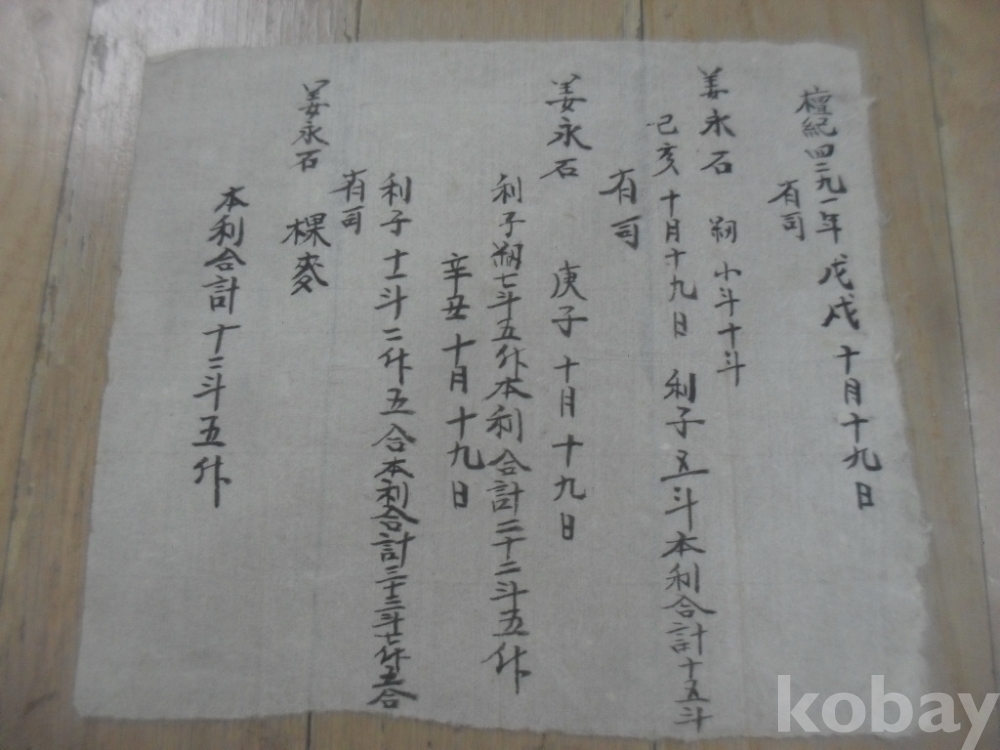 檀紀四二九一年 戊戌 十月十九日
有司
姜永石 租 小斗十斗
己亥 十月十九日 利子五斗本利合計十五斗
有司
姜永石 庚子十月十九日
利子租七斗五升本利合計二十二斗五升
辛丑十月十九日
利子十一斗二升五合本利合計三十三斗七升五合
有司
姜永石 裸麥
本利合計十二斗五升
kobay